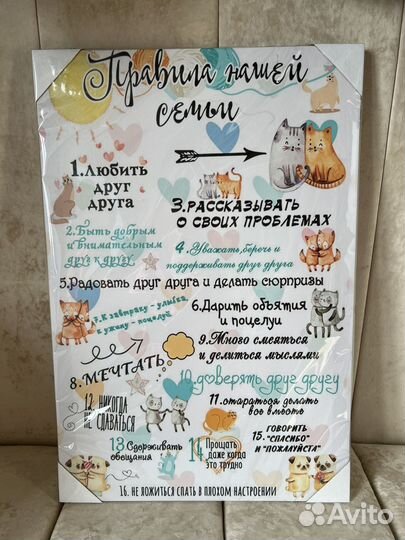 Правила нашей
семьи
1.Любить
друг
друга
3.РАССКАЗЫВАТЬ
О СВОИХ ПРОБЛЕМАХ
2.Быть добрым
и внимательным
друг к другу
4.Уважать,беречь и
поддерживать друг друга
5.Радовать друг друга и делать сюрпризы
7.К завтраку - улыбка,
к ужину - поцелуй
6.Дарить объятия
и поцелуи
9.Много смеяться
и делиться мыслями
8.МЕЧТАТЬ
10.доверять друг другу
12. НИКОГДА
НЕ СДАВАТЬСЯ
11.стараться делать
все вместе
13 Сдерживать
обещания
14 Прощать
даже когда
это трудно
15. ГОВОРИТЬ
"СПАСИБО"
И "ПОЖАЛУЙСТА"
16. НЕ ЛОЖИТЬСЯ СПАТЬ В ПЛОХОМ НАСТРОЕНИИ
Avito